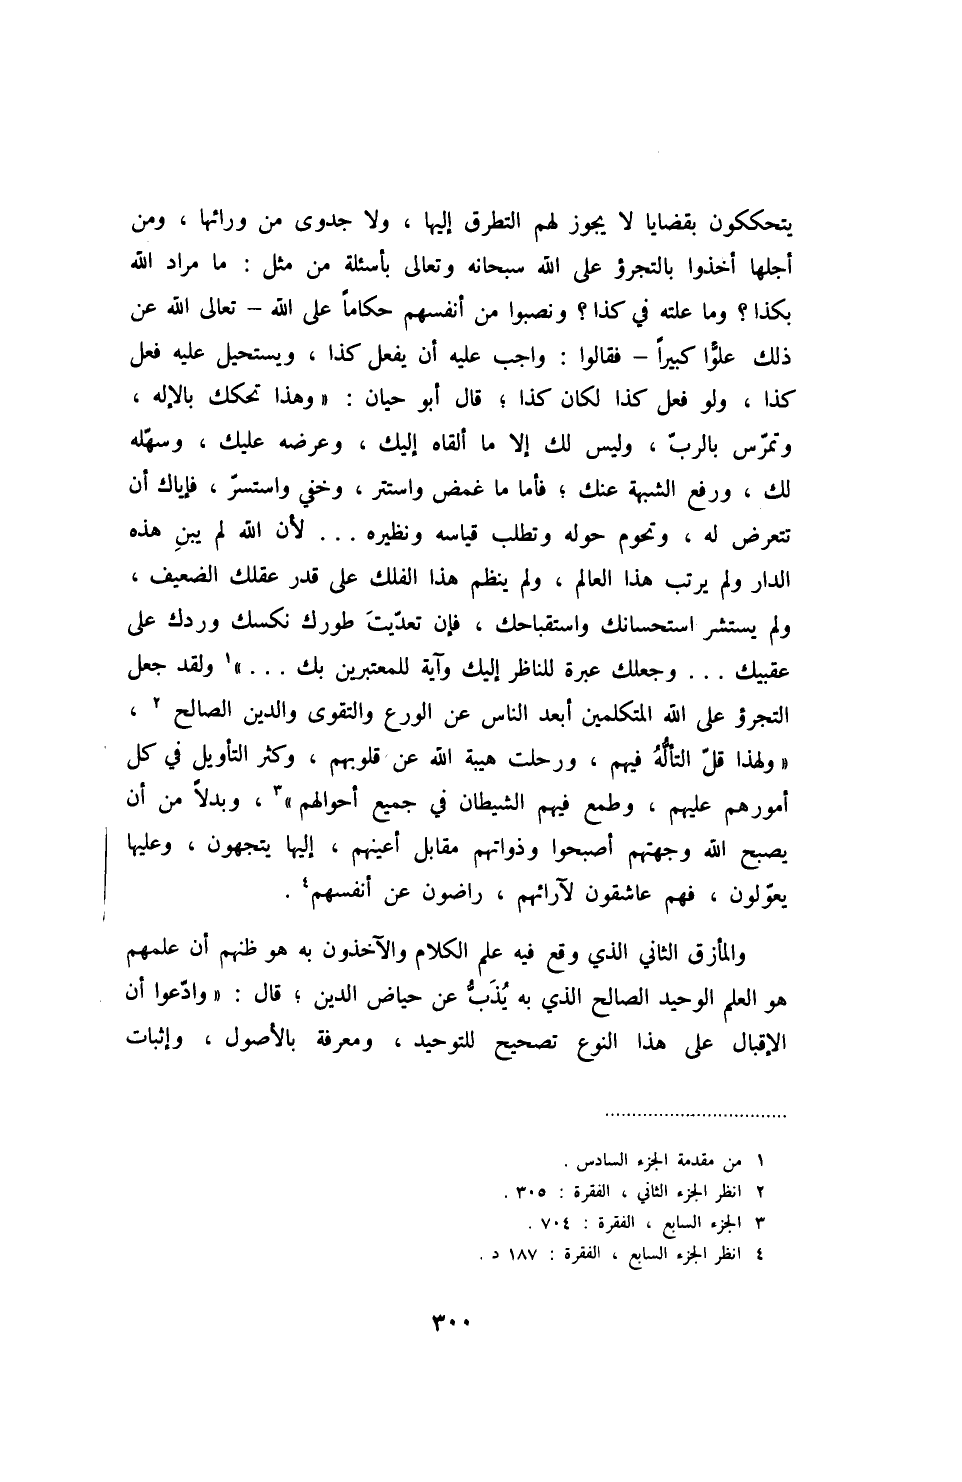 يتحككون بقضايا لا يجوز لهم التطرق إليها ، ولا جدوى من ورائها ، ومن
أجلها أخذوا بالتجرؤ على الله سبحانه وتعالى بأسئلة من مثل : ما مراد الله
بكذا ؟ وما علته في كذا ؟ ونصبوا من أنفسهم حكاماً على الله – تعالى الله عن
ذلك علوًّا كبيراً – فقالوا : واجب عليه أن يفعل كذا ، ويستحيل عليه فعل
كذا ، ولو فعل كذا لكان كذا ؛ قال أبو حيان : « وهذا تحكك بالإله ،
وتمرّس بالربّ ، وليس لك إلا ما ألقاه إليك ، وعرضه عليك ، وسهّله
لك ، ورفع الشبهة عنك ؛ فأما ما غمض واستتر ، وخفي واستسرّ ، فإياك أن
تتعرض له ، وتحوم حوله وتطلب قياسه ونظيره ... لأن الله لم يبنِ هذه
الدار ولم يرتب هذا العالم ، ولم ينظم هذا الفلك على قدر عقلك الضعيف ،
ولم يستشر استحسانك واستقباحك ، فإن تعدّيتَ طورك نكسك وردك على
عقبيك ... وجعلك عبرة للناظر إليك وآية للمعتبرين بك ... »١ ولقد جعل
التجرؤ على الله المتكلمين أبعد الناس عن الورع والتقوى والدين الصالح ٢ ،
« ولهذا قلّ التألُّهُ فيهم ، ورحلت هيبة الله عن قلوبهم ، وكثر التأويل في كل
أمورهم عليهم ، وطمع فيهم الشيطان في جميع أحوالهم »٣ ، وبدلاً من أن
يصبح الله وجهتهم أصبحوا وذواتهم مقابل أعينهم ، إليها يتجهون ، وعليها
يعوّلون ، فهم عاشقون لآرائهم ، راضون عن أنفسهم٤ .
والمأزق الثاني الذي وقع فيه علم الكلام والآخذون به هو ظنهم أن علمهم
هو العلم الوحيد الصالح الذي به يُذَبُّ عن حياض الدين ؛ قال : « وادّعوا أن
الإقبال على هذا النوع تصحيح للتوحيد ، ومعرفة بالأصول ، وإثبات
١ من مقدمة الجزء السادس .
٢ انظر الجزء الثاني ، الفقرة : ٣٠٥ .
٣ الجزء السابع ، الفقرة : ٧٠٤ .
٤ انظر الجزء السابع ، الفقرة : ١٨٧ د .
٣٠٠